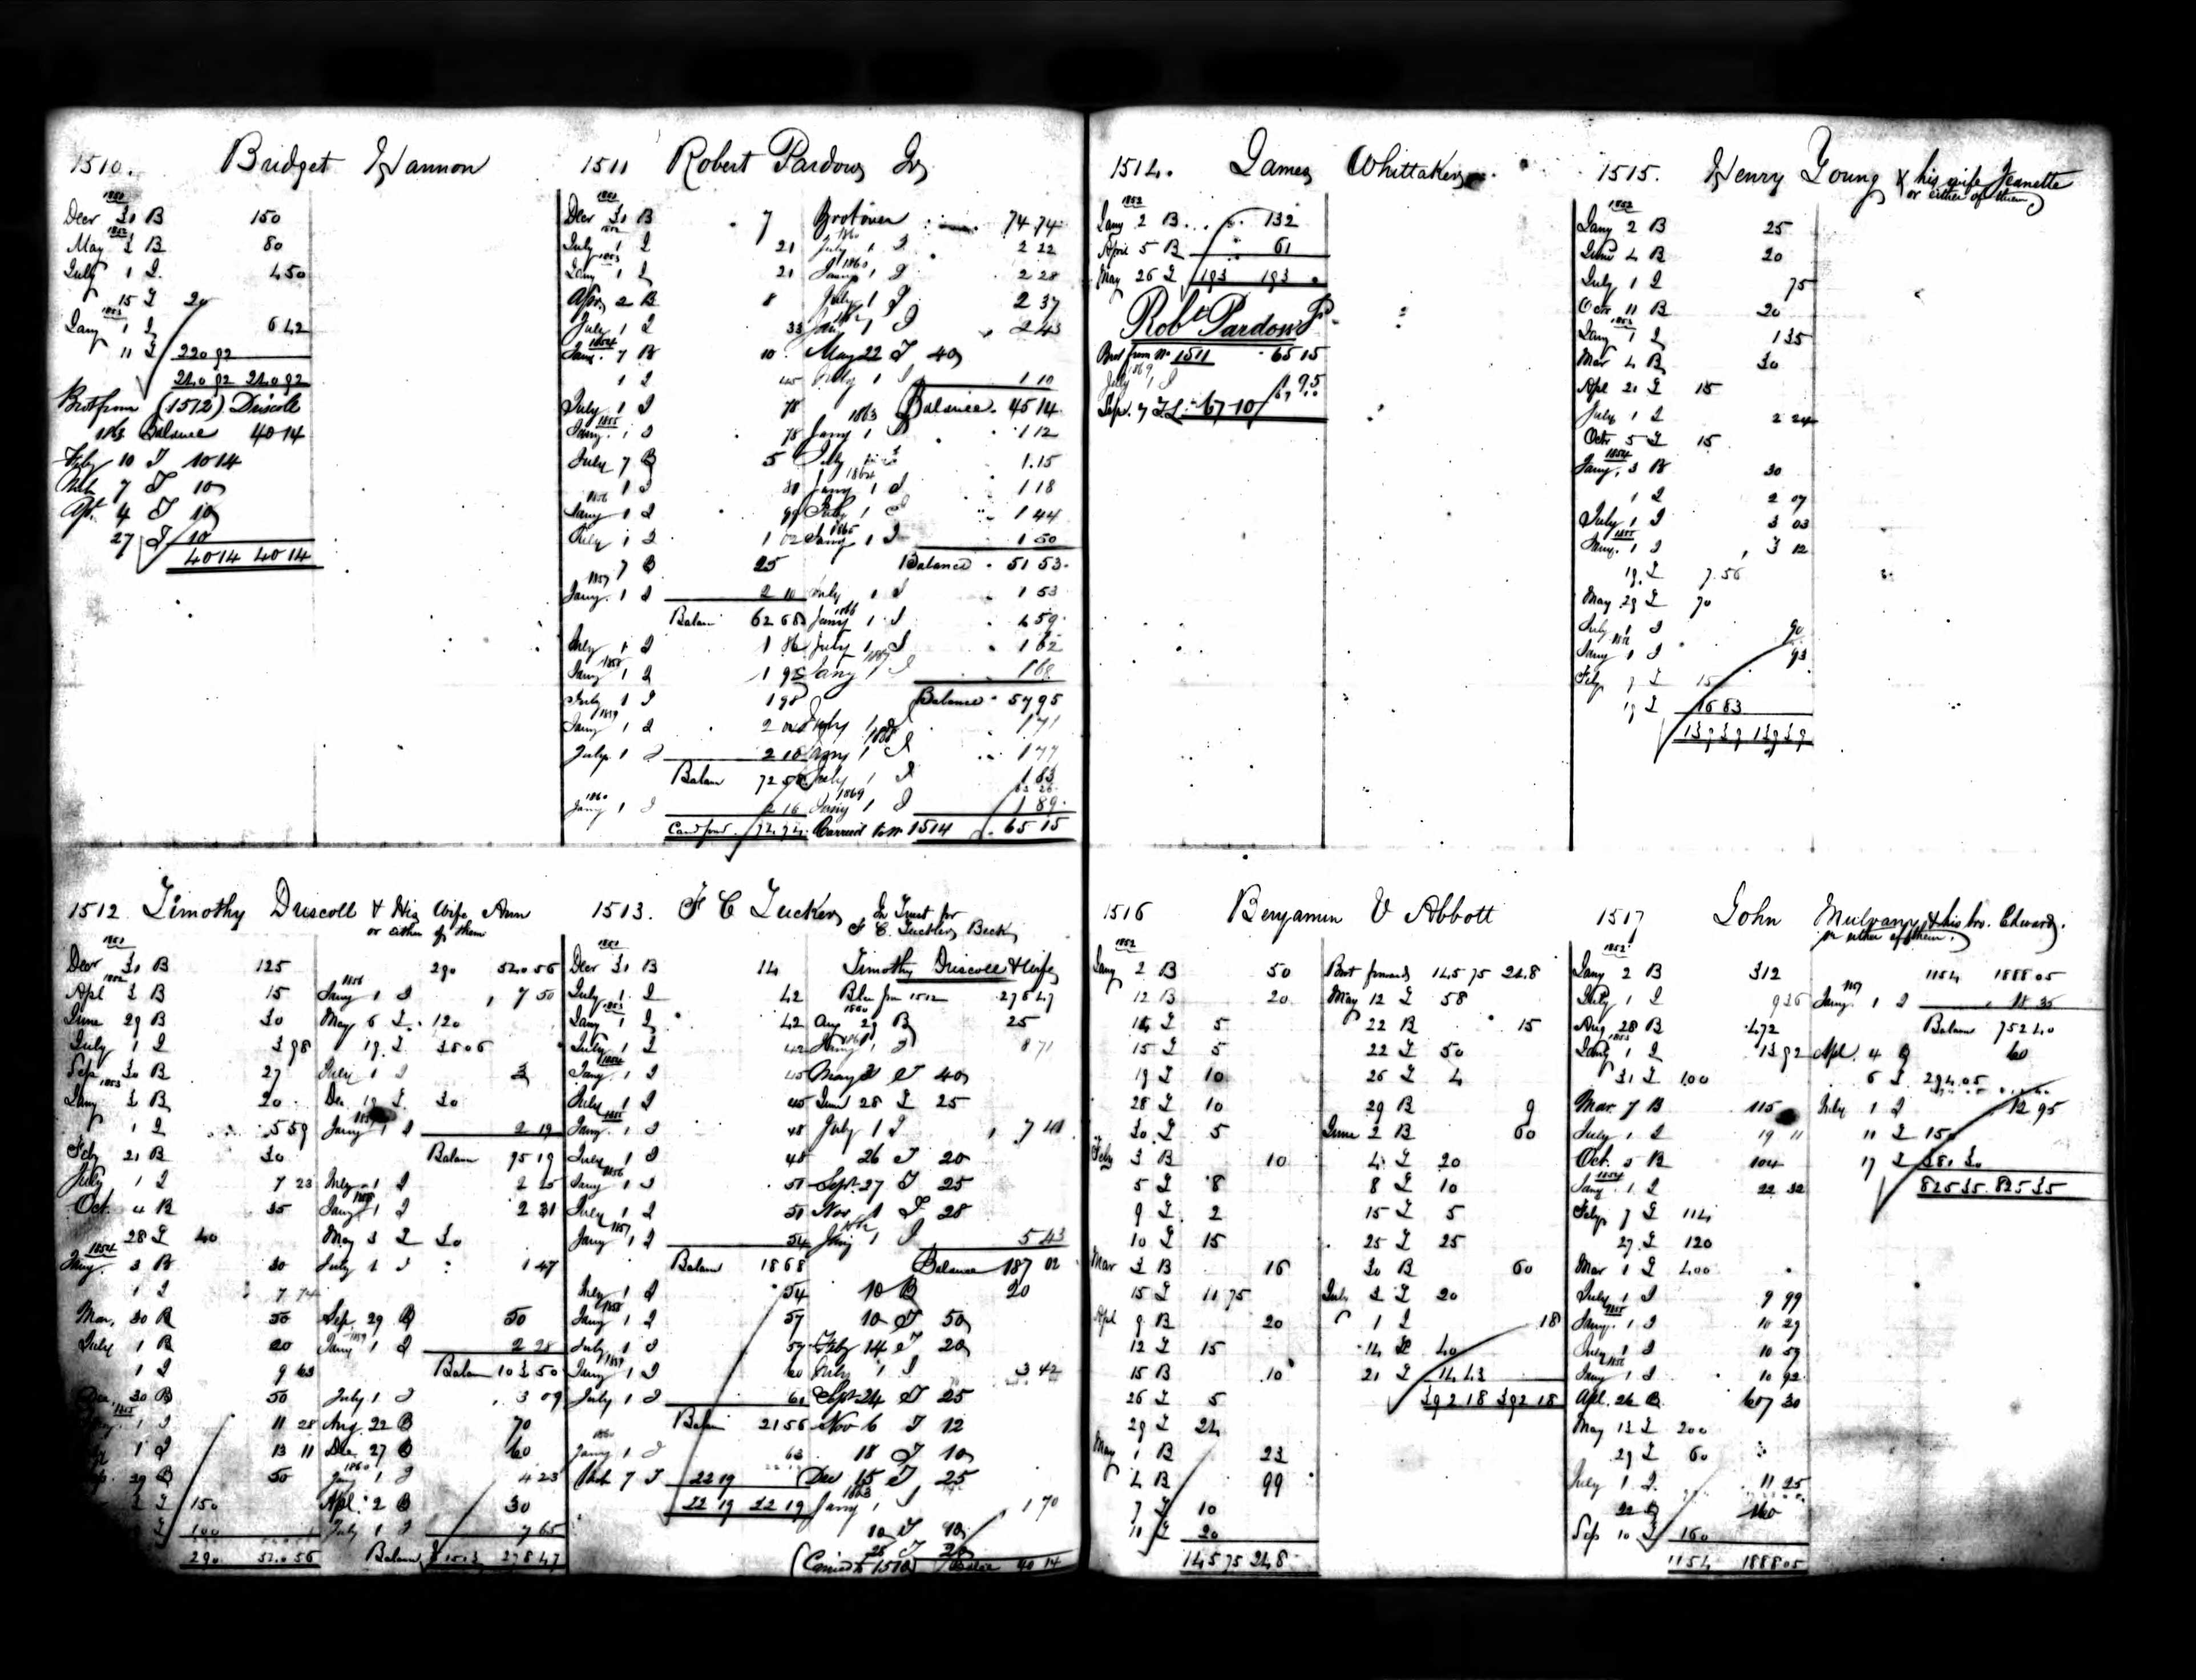 1510. Bridget Hannon
1851
Decr 31 B 150
1852
May 3 B 80
July 1 I. 4 50
15 I 20
1853
Jany 1 I 6 42
11 I 220 92
240 92 240 92
Brot from (1512) Driscoll
1863 Balance 40 14
Feby 10 I 10 14
Mch 7 I 10
Apl. 4 I 10
27 I 10
40 14 40 14
1511 Robert Pardow Jr
1851
Decr 31 B 7
1852
July 1 I 21
1853
Jany 1 I 21
Apr. 2 B 8
July 1 I 33
1854
Jany. 7 B 10
1 I 45
July 1 I 78
1855
Jany. 1 I 78
July 7 B 5
1 I 81
1856
Jany 1 I 99
July 1 I 1 02
7 B 25
1857
Jany. 1 I 2 10
Balan 62 68
July 1 I 1 86
1858
Jany 1 I 1 95
July 1 I 1 98
1859
Jany 1 I 2 04
July 1 I 2 10
Balan 72 58
1860
Jany 1 I 2 16
Card ford. 74 74
Brot over 74 74
1860
July 1 I 2 22
Jany 1 I 2 28
July 1 I 2 37
Jany 1 I 2 43
May 22 I 40
July 1 I 1 10
Balance. 45 14
1863
Jany 1 I 1 12
July 1 I 1.15
1864
Jany 1 I 1 18
July 1 I 1 44
1865
Jany 1 I 1 50
Balance 51 53
July 1 I 1 53
1866
Jany 1 I 1 59
July 1 I 1 62
1867
Jany 1 I 1 68
Balance 57 95
July 1 I 1 71
1868
Jany 1 I 1 77
July 1 I 1 83
1869
Jany 1 I 1 89
Carried to No 1514 65 15
1512 Timothy Driscoll & His Wife Ann
or either of them
1851
Decr 31 B 125
1852
Apl 3 B 15
June 29 B 30
July 1 I 3 98
Sep 30 B 27
1853
Jany 3 B 20
1 I 5 59
Feby 21 B 30
July 1 I 7 23
Oct. 4 B 35
28 I 40
1854
Jany. 3 B 30
1 I 7 74
Mar. 30 B 50
July 1 B 20
1 I 9 63
Dec. 30 B 50
1855
Jany. 1 I 11 28
1 I 13 11
29 B 50
I 150
I 100
290 540 56
290 540 56
1856
Jany 1 I 7 50
May 6 I. 120
19 I 350 6
July 1 I 3
Dec 19 I 30
1857
Jany 1 I 2 19
Balan 95 19
July 1 I 2 25
1858
Jany 1 I 2 31
May 3 I 30
July 1 I 1 47
Sep. 29 B 50
1859
Jany 1 I 2 28
Balan 103 50
July 1 I 3 09
Aug. 22 B 70
Dec. 27 B 60
1860
Jany 1 I 4 23
Apl. 2 B 30
July 1 I 7 65
Balan to 1513 278 47
1513. F C Tucker, In Trust for
F. C. Tuckler Beck
1851
Decr 31 B 14
July 1 I 42
1853
Jany 1 I 42
July 1 I 42
1854
Jany. 1 I 45
July 1 I 45
1855
Jany. 1 I 48
July 1 I 48
1856
Jany 1 I 51
July 1 I 51
1857
Jany 1 I 54
Balan 18 68
July 1 I 54
1858
Jany 1 I 57
July 1 I 57
1859
Jany 1 I 60
July 1 I 60
Balan 21 56
1860
Jany 1 I 63
Mch 7 I 22 19
22 19 22 19
Timothy Driscoll & Wife
Blce from 1512 278 47
1860
Aug 29 B 25
1861
Jany 1 I 8 71
May 21 I 40
June 28 I 25
July 1 I 7 41
26 I 20
Sept. 27 I 25
Nov 1 I 28
1862
Jany 1 I 5 43
Balance 187 02
10 B 20
10 I 50
Feby 14 I 20
July 1 I 3 42
Sept 24 I 25
Nov 6 I 12
18 I 10
Dec 15 I 25
1863
Jany 1 I 1 70
10 I 10
25 I 20
(Carried to 1510) Balce 40 14
1514. James Whittaker
1852
Jany 2 B 132
April 5 B 61
May 26 I 193 193
Robt. Pardow Jr
Brot from No 1511 65 15
1869
July 1 I 1 95
Sep. 7 I 67 10
1515. Henry Young & his wife Jeanette
or either of them
1852
Jany 2 B 25
June 4 B 20
July 1 I 75
Octr 11 B 20
1853
Jany 1 I 1 35
Mar 4 B 30
Apl 21 I 15
July 1 I 2 24
Octr 5 I 15
1854
Jany. 3 B 30
1 I 2 07
July 1 I 3 03
1855
Jany. 1 I 3 12
19 I 7 56
May 29 I 70
July 1 I 90
1856
Jany 1 I 93
Feby 7 I 15
19 I 16 83
139 39 139 39
1516 Benjamin V Abbott
1852
Jany 2 B 50
12 B 20
14 I 5
15 I 5
19 I 10
28 I 10
30 I 5
Feby 3 B 10
5 I 8
9 I 2
10 I 15
Mar 3 B 16
15 I 11 75
Apl 9 B 20
12 I 15
15 B 10
26 I 5
29 I 24
May 1 B 23
4 B 99
7 I 10
11 I 20
145 75 248
Brot forward 145 75 248
May 12 I 58
22 B 15
22 I 50
26 I 4
29 B 9
June 2 B 60
4 I 20
8 I 10
15 I 5
25 I 25
30 B 60
July 3 I 20
1 I 18
14 I 40
21 I 14 43
392 18 392 18
1517 John Mulvany & his bro. Edward.
or either of them.
1852
Jany 2 B 312
July 1 I 9 36
Aug 28 B 472
1853
Jany 1 I 13 92
31 I 100
Mar. 7 B 115
July 1 I 19 11
Oct. 5 B 104
1854
Jany. 1 I 22 32
Feby 7 I 114
27 I 120
Mar 1 I 400
July 1 I 9 99
1855
Jany. 1 I 10 29
July 1 I 10 59
1856
Jany 1 I 10 92
Apl. 26 B 607 30
May 13 I 200
29 I 60
July 1 I 11 25
22 B 160
Sep 10 I 160
1154 1888 05
1154 1888 05
1857
Jany. 1 I 18 35
Balan 752 40
Apl. 4 B 60
6 I 294 05
July 1 I 12 95
11 I 150
17 I 381 30
825 35 825 35